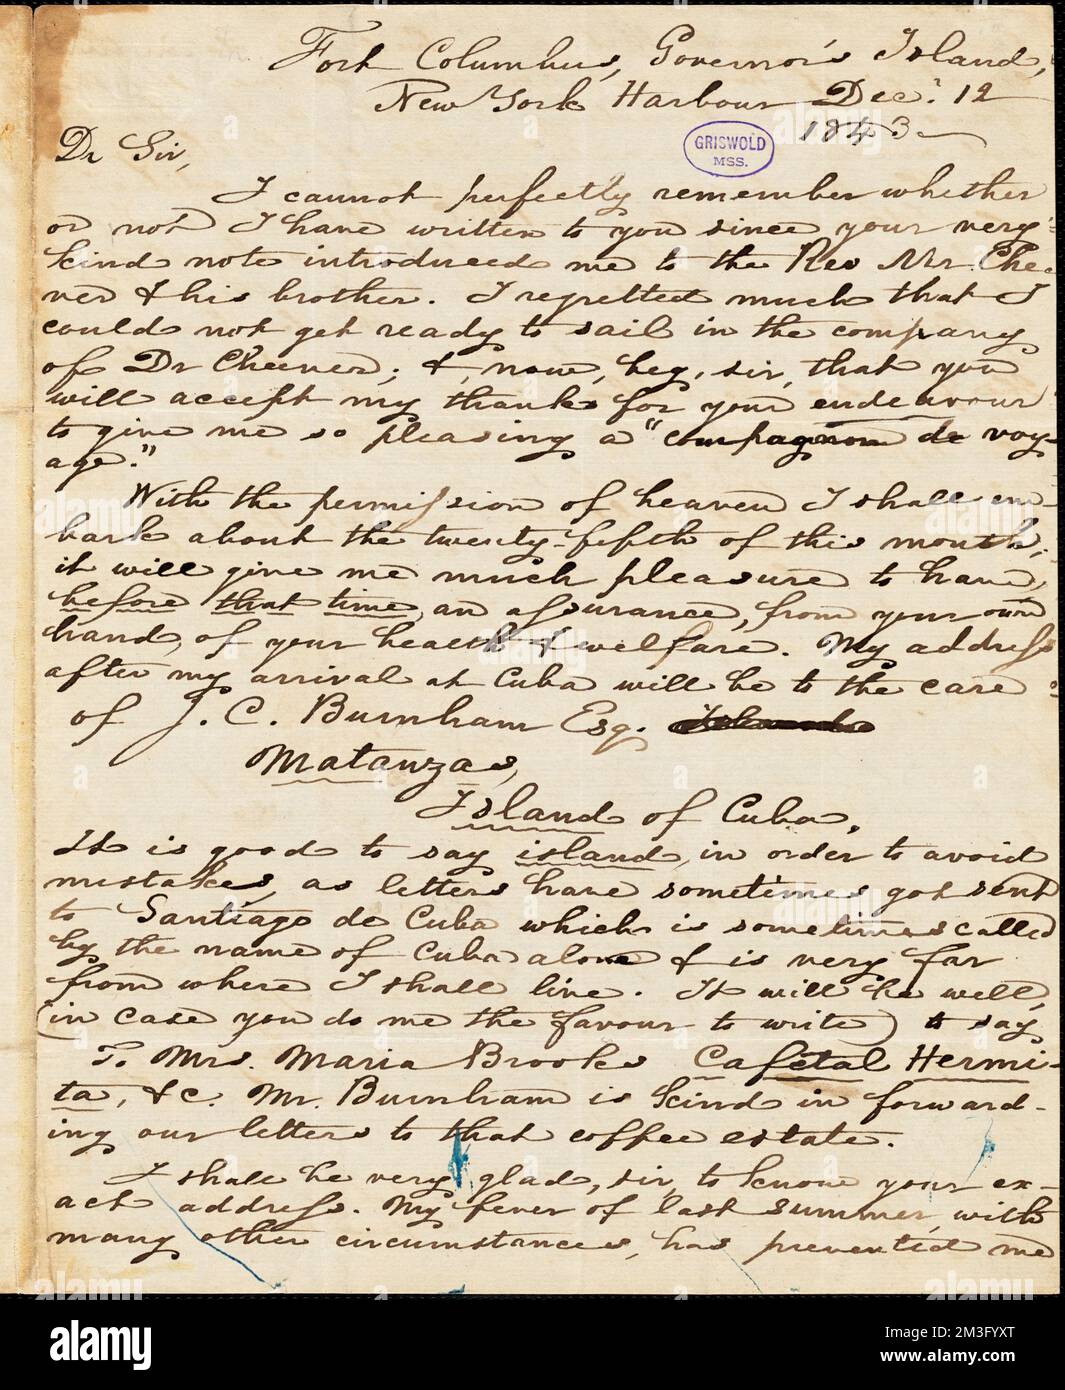 Fort Columbus, Governor's Island,
New York Harbour Dec. 12
1843
GRISWOLD
MSS.
Dr Sir,
I cannot perfectly remember whether
or not I have written to you since your very
kind note introduced me to the Rev Mr. Chee-
ver & his brother. I regretted much that I
could not get ready to sail in the company
of Dr Cheever; &, now, beg, sir, that you
will accept my thanks for your endeavour
to give me so pleasing a "compagnom de voy-
age."
With the permission of heaven I shall em-
bark about the twenty-fifth of this month;
it will give me much pleasure to have,
before that time, an assurance, from your own
hand, of your health & welfare. My address
after my arrival at Cuba will be to the care
of J. C. Burnham Esq.
Matanzas,
Island of Cuba.
It is good to say island, in order to avoid
mistakes, as letters have sometimes got sent
to Santiago de Cuba which is sometimes called
by the name of Cuba alone & is very far
from where I shall live. It will be well,
(in case you do me the favour to write) to say
To Mrs. Maria Brooks Cafetal Hermi-
ta, &c. Mr. Burnham is kind in forward-
ing our letters to that coffee estate.
I shall be very glad, sir, to know your ex-
act address. My fever of last summer, with
many other circumstances, has prevented me
alamy
Image ID: 2M3FYXT
www.alamy.com